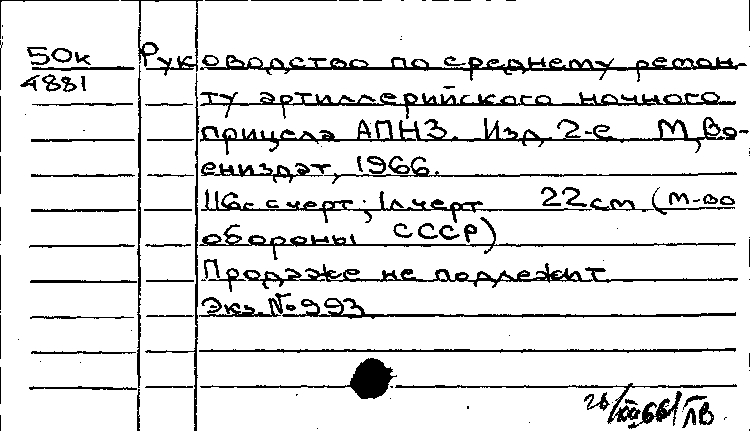 50к Руководство по среднему ремон-
4881 ту артиллерийского ночного
прицела АПН3. Изд. 2-е М, Во-
ениздат, 1966.
116с с черт; 1л. черт 22 см (М-во
обороны СССР)
Продаже не подлежит
Экз. № 993
/XII 66 / ЛВ